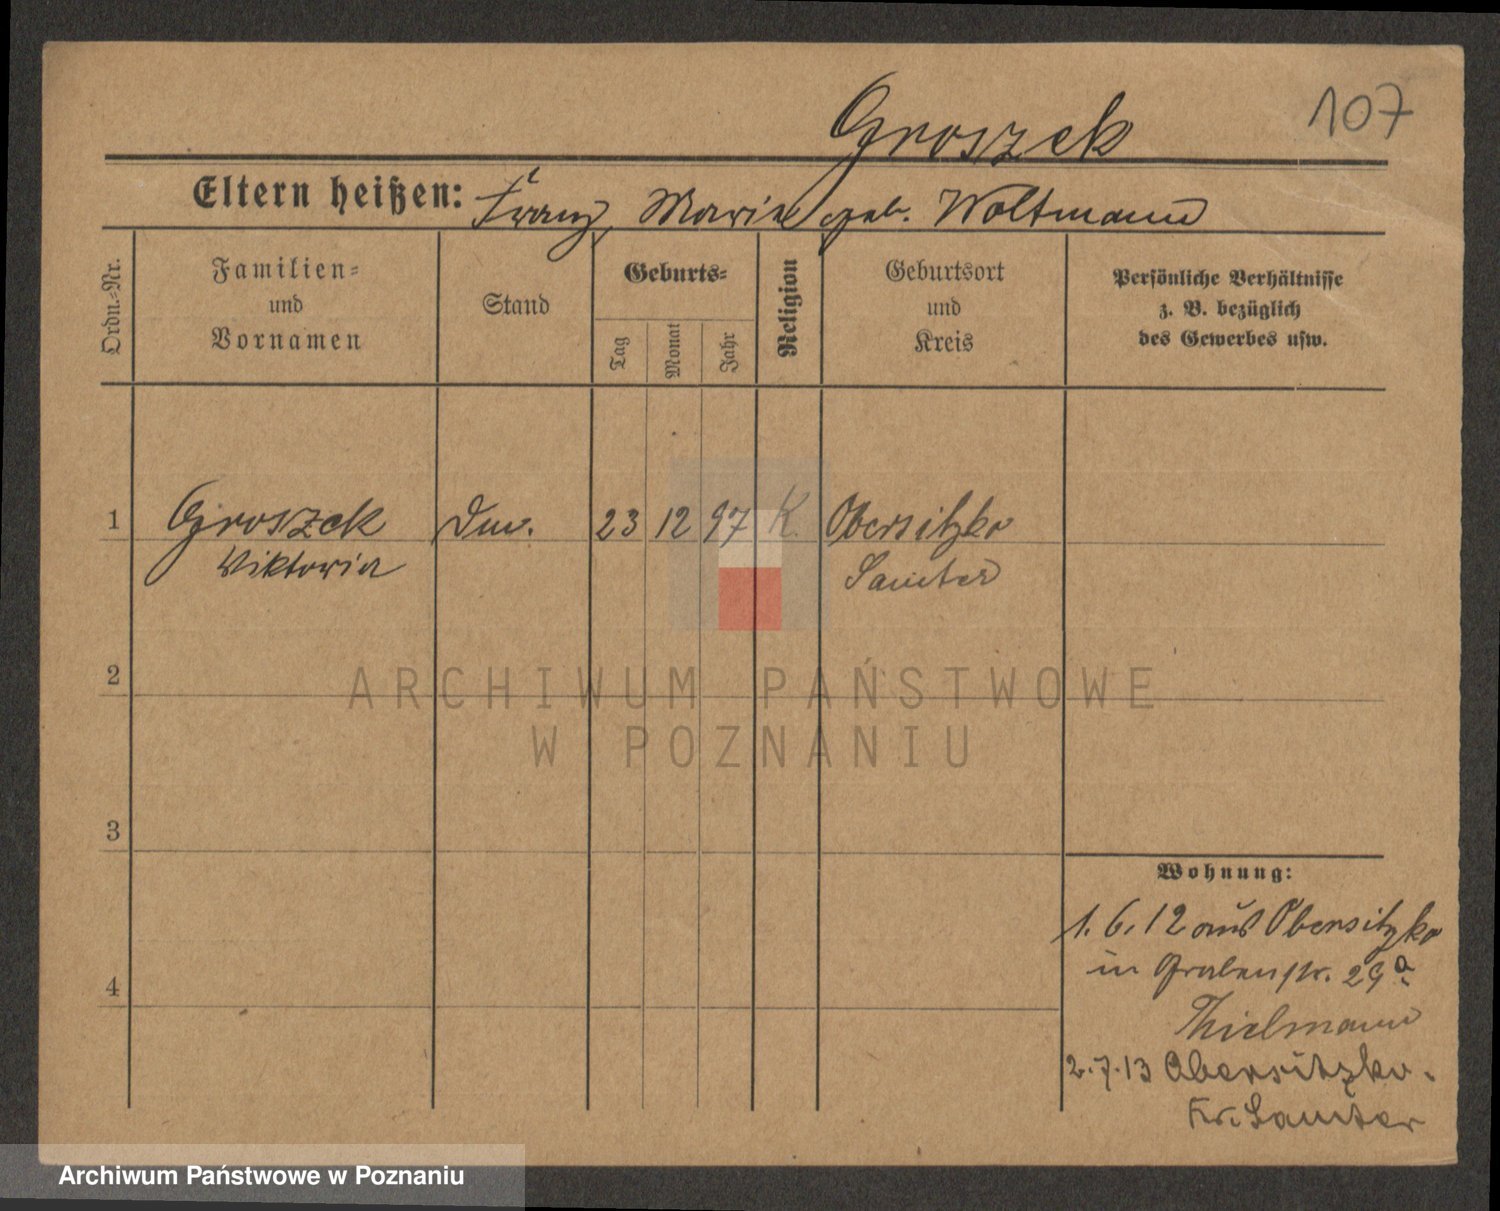 107
Groszek
Eltern heißen: Franz, Maria geb. Woltmann
Ordn.-Nr.
Familien-
und
Vornamen
Stand
Geburts-
Tag
Monat
Jahr
Religion
Geburtsort
und
Kreis
Persönliche Verhältnisse
z. B. bezüglich
des Gewerbes usw.
1 Groszek 23 12 97 K. Obersitzko
Viktoria Samter
2
3
4
Wohnung:
1. 6. 12 aus Obersitzko
in Grabenstr. 29a
Thielmann
2.7.13 Obersitzko.
Kr. Samter
ARCHIWUM PAŃSTWOWE
W POZNANIU
Archiwum Państwowe w Poznaniu